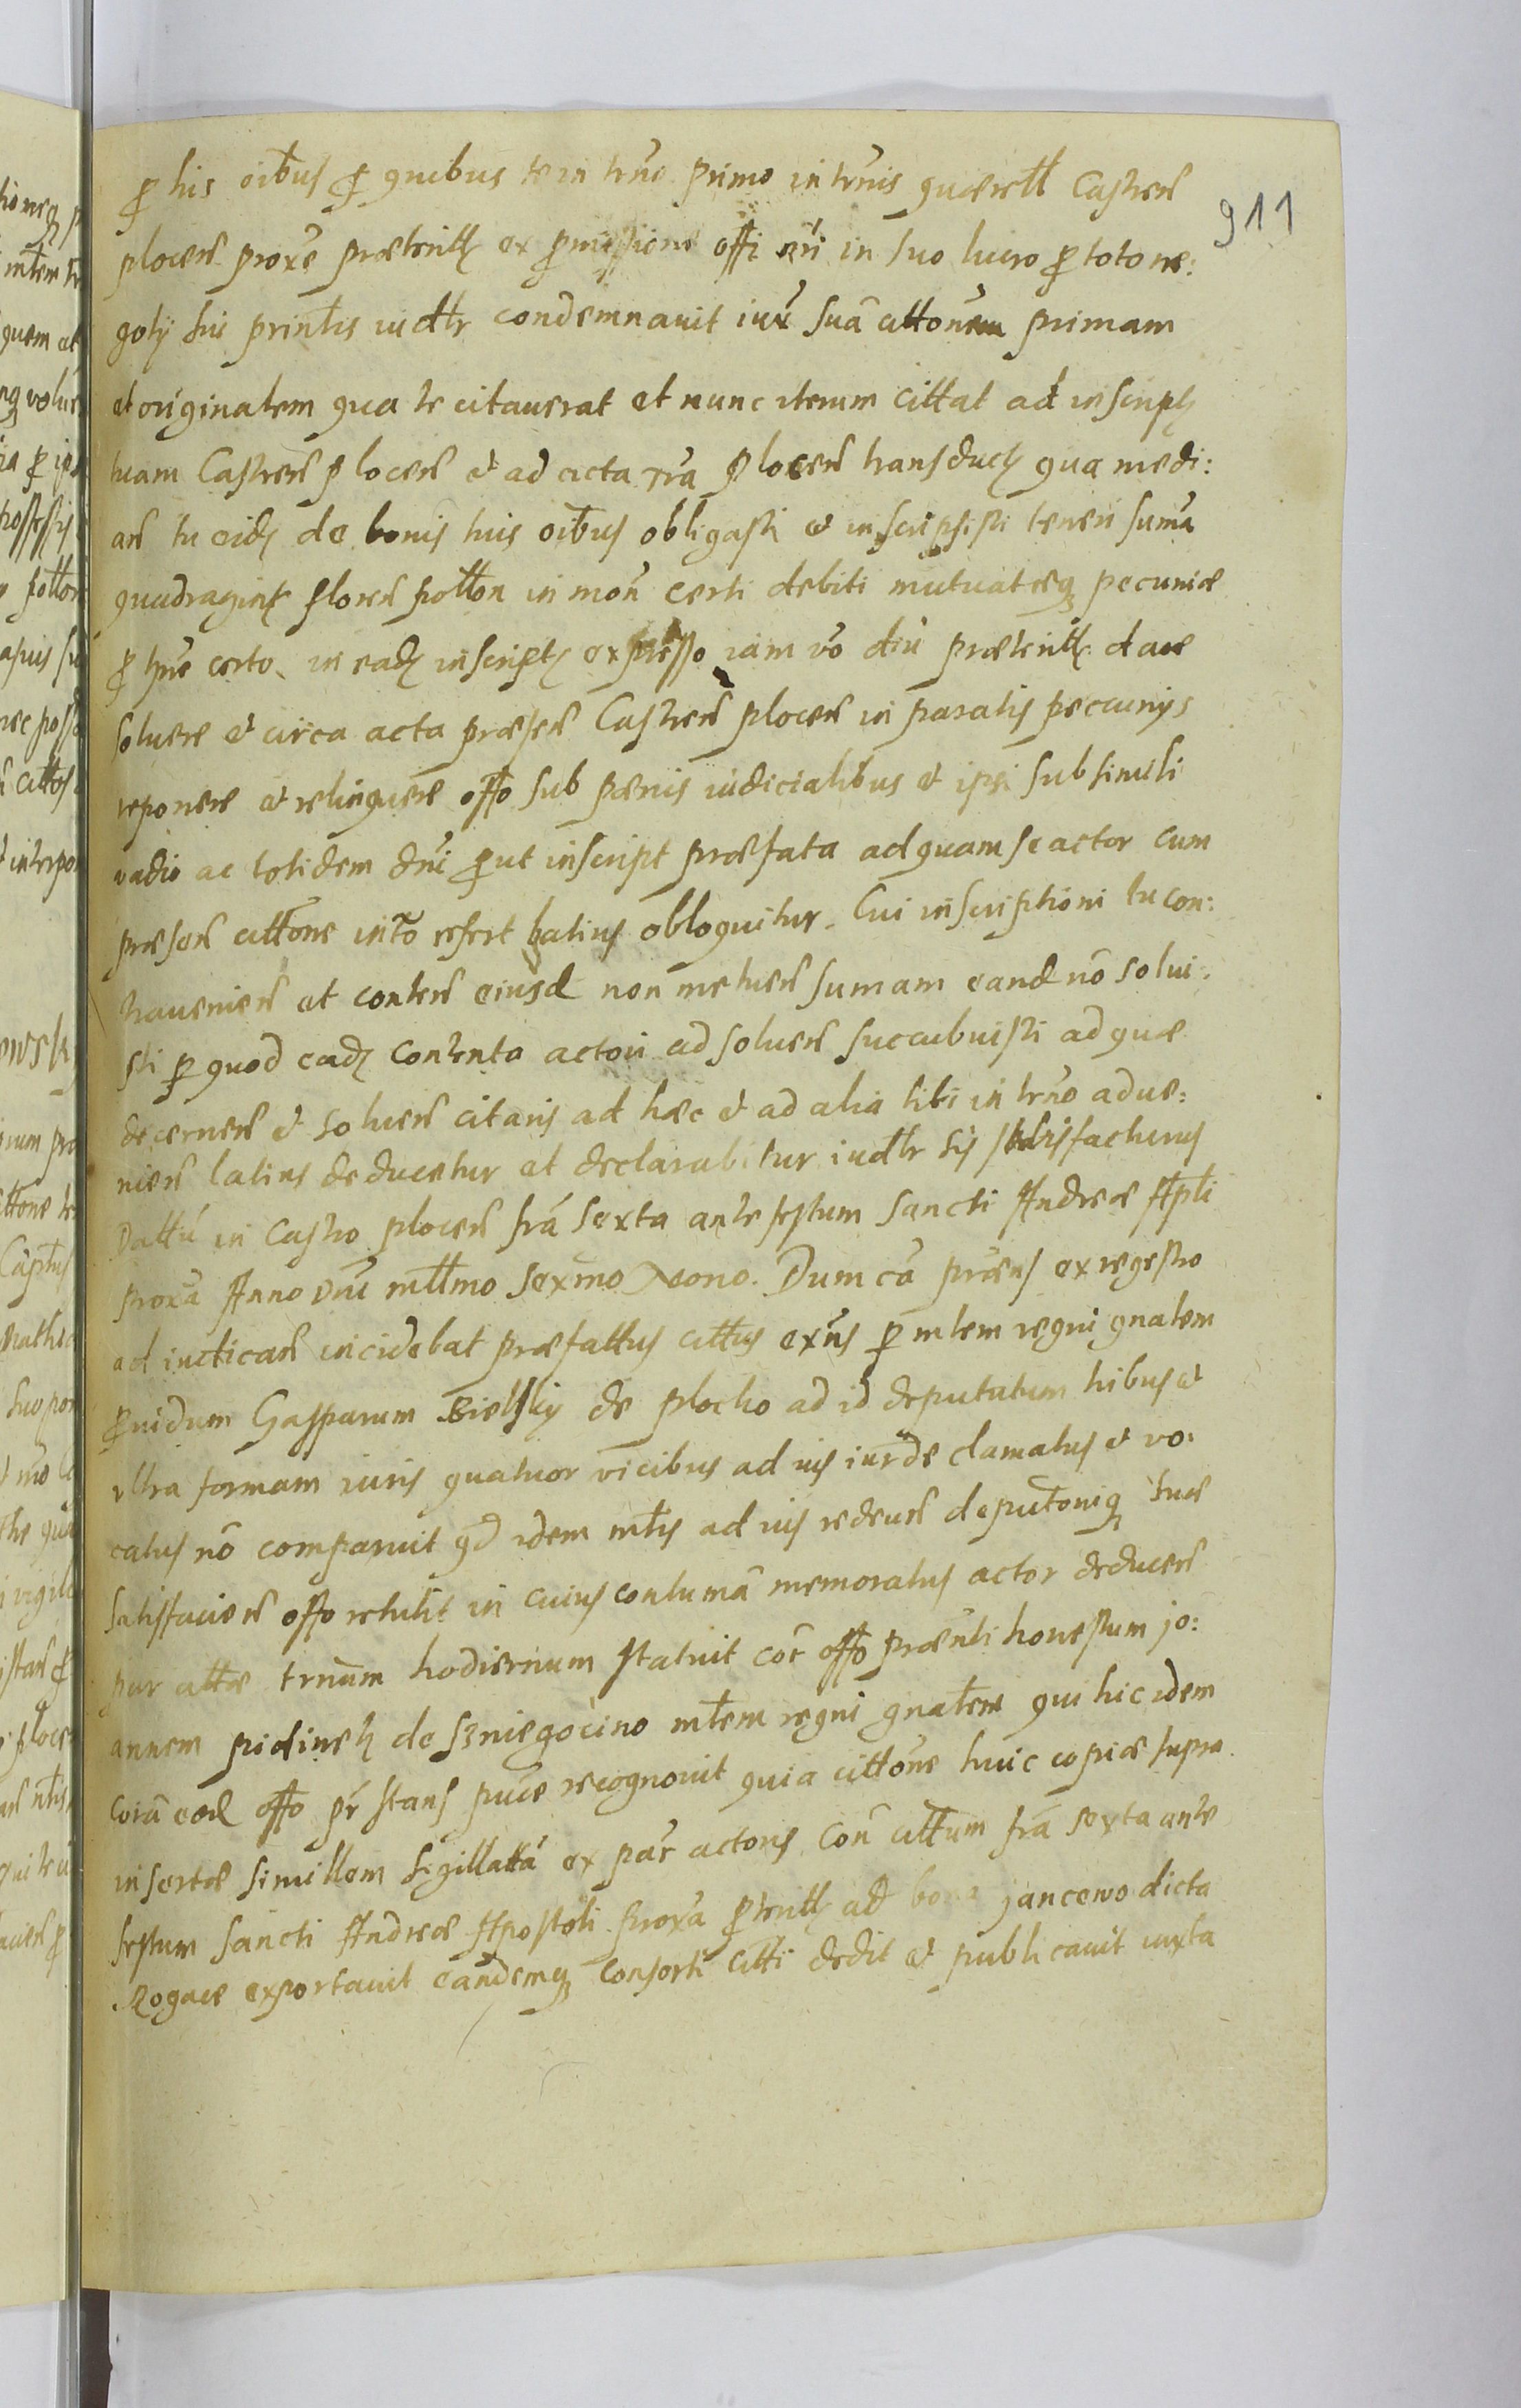 911
ꝓ his oib̃us ꝓ quibus te in trño primo in trñis querell Castreñ
ploceñ proxe præteritt ex ꝓmissione offi nri in suo lucro ꝓ toto ne:
gotÿ sui print̃is iudtr condemnauit iux̃ suã cittoñem primam
et originalem qua te citauerat et nunc iterum cittat ad inscript
tuam Castreñ ploceñ et ad acta rrã ploceñ transduct qua medi:
añ tu eid de bonis tuis oib̃us obligasti et inscripsisti teneri sum̃a
quadragint floreñ polłon in moñ certi debiti mutuatæq pecuniæ
ꝓ tpre certo in ead inscript expresso iam vo diu præteritt dare
soluere et circa acta præseñ Castreñ ploceñ in paratis pecunÿs
reponere et relinquere offo sub pænis iudicialibus et ipsi sub simili
vadio ac totidem dñi ꝓut inscript præfata ad quam se actor cum
præseñ cittone int̃o refert latius obloquitur. Cui inscriptioni tu con:
traueniеñ et conteñ eiusd non metueñ sumam eand nõ solui:
sti ꝑ quod ead contenta actori ad solueñ succubuisti ad quæ
decerneñ et solueñ citaris ad hæc et ad alia tibi in trño adue:
nieñ latius deducetur et declarabitur iudtr sis satisfacturus
Dattũ in Castro ploceñ frã sexta ante festum Sancti Andreæ Apłi
proxã Anno Dñi mıllmo sexmo Nono. Dum cã præns ex regestro
ad iudicañ incidebat præfattus cittus exñs ꝑ mlem regni gnalem
ꝓuidum Gasparum Bielsky de plocko ad id deputatum tribus et
vltra formam iuris quatuor vicibus ad ius iurde clamatus et vo:
catus nõ comparuit qd idem mtis ad ius redeuñ deputoniq suæ
satisfacieñ offo retulit in cuius contumã memoratus actor deduceñ
par cittæ trñum hodiernum statuit cor offo præñti honestum jo:
annem pidinek de Szniegocino mt̃em regni gnałem qui hic idem
corã eod offo pr stans puce recognouit quia cittone huic copiæ supra
insertæ simillem sigillattã ex par actoris Coñ cittum frã sexta ante
festum Sancti Andreæ Apostoli proxã ꝓteritt ad bona jancewo dicta
Rogace exportauit eandemq consorti citti dedit et publicauit iuxta